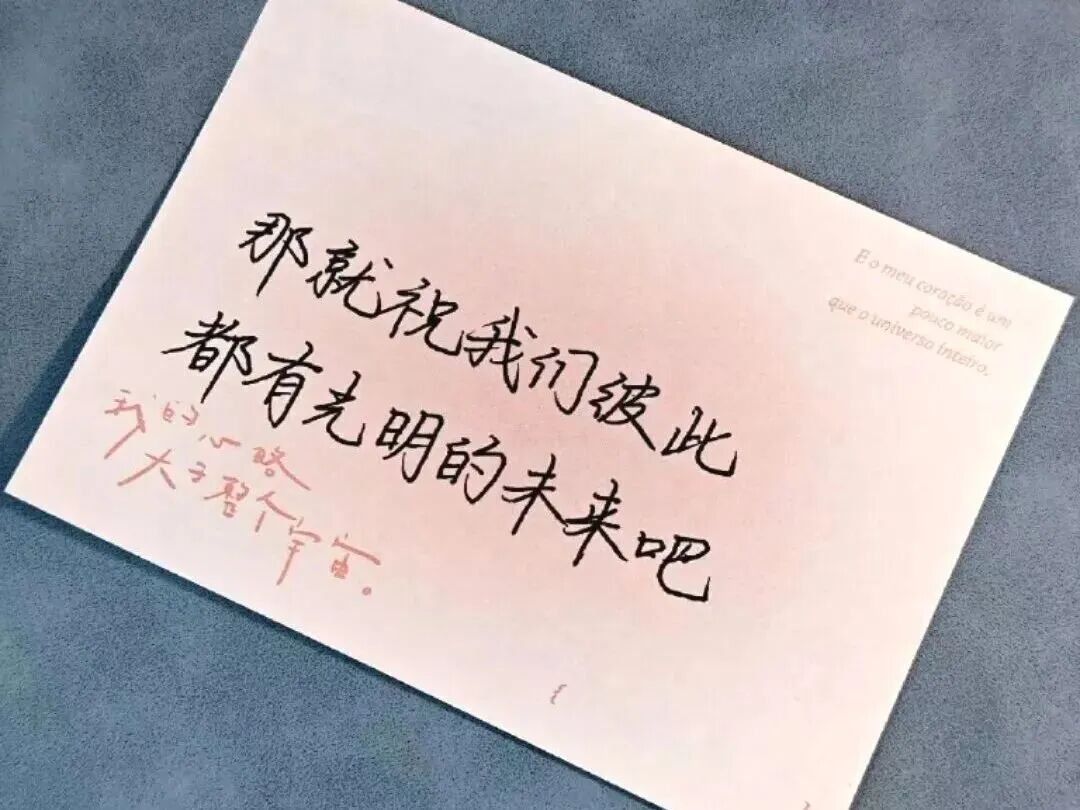 E o meu coração é um
pouco maior
que o universo inteiro.
那就祝我们彼此
都有光明的未来吧
我的心略
大于整个宇宙。